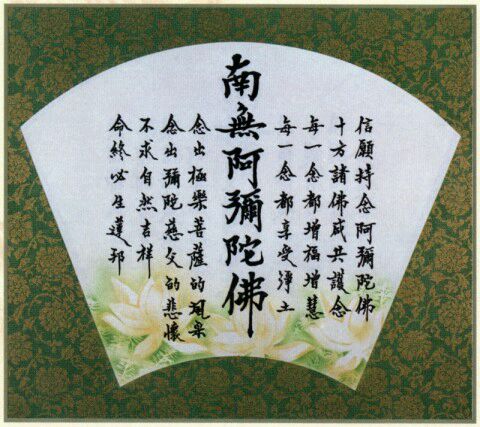 信願持念阿彌陀佛
十方諸佛咸共護念
每一念都增福增慧
每一念都享受淨土
南無阿彌陀佛
念出極樂菩薩的風采
念出彌陀慈父的悲懷
不求自然吉祥
命終必生蓮邦